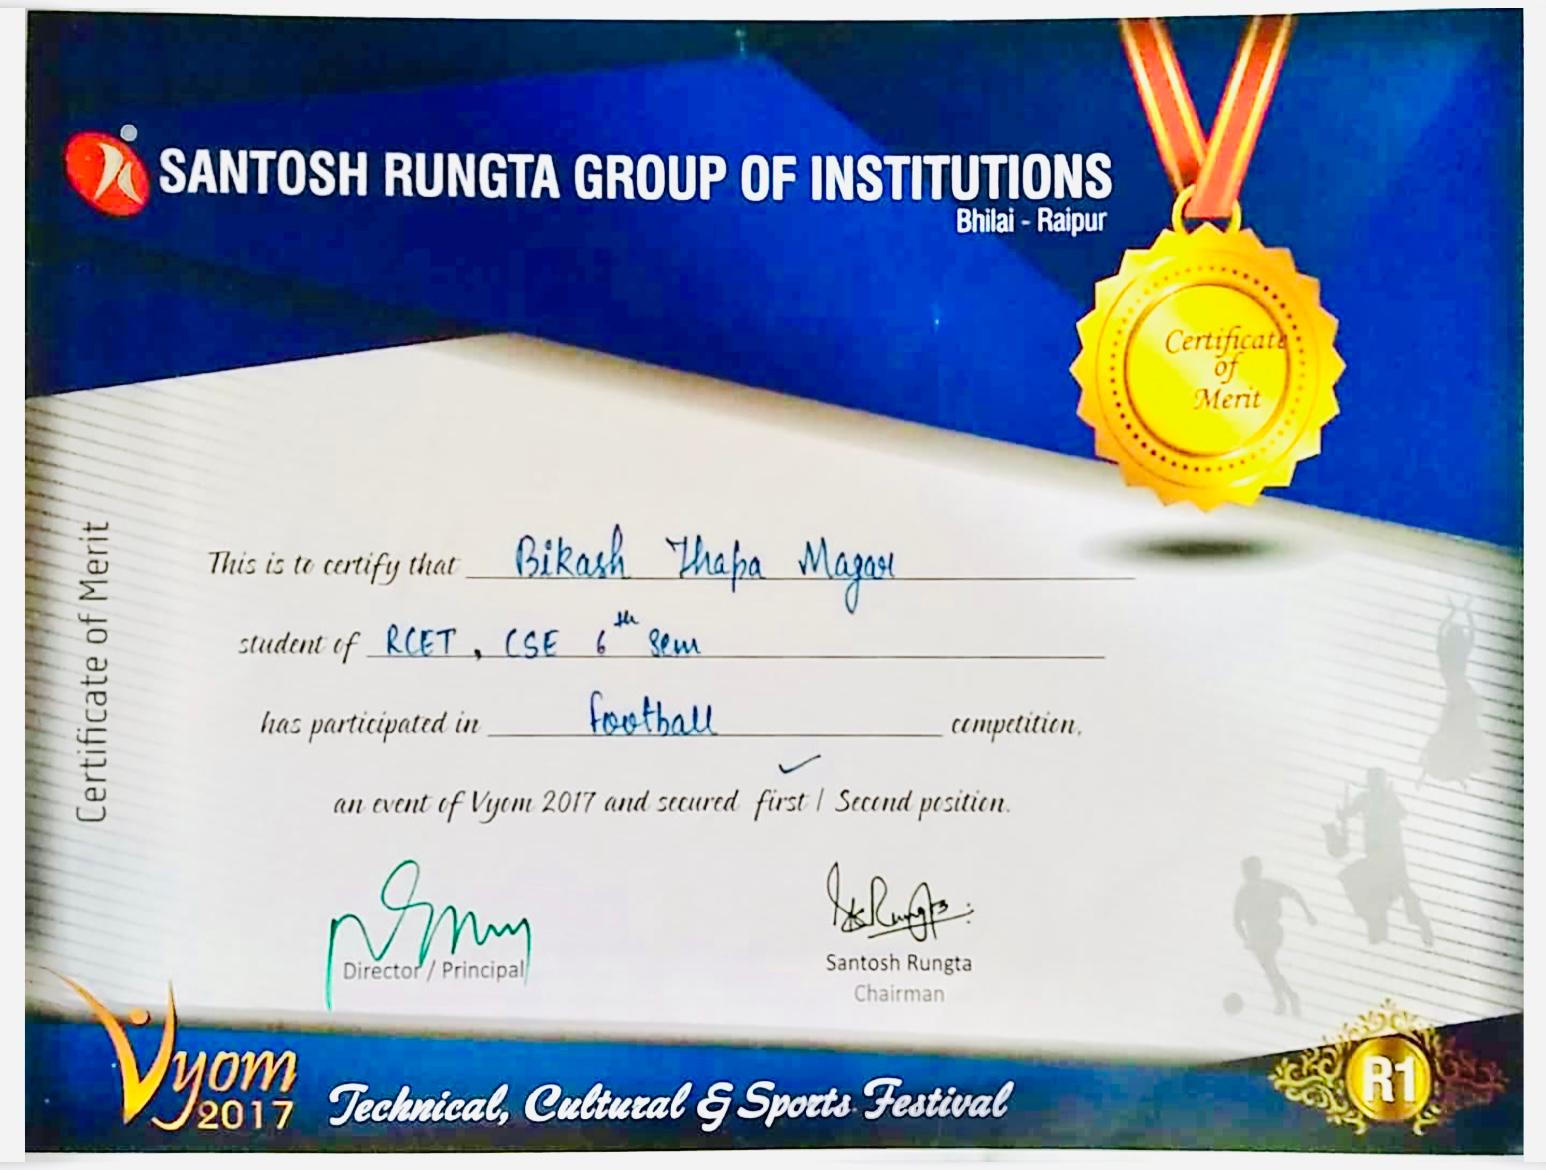 SANTOSH RUNGTA GROUP OF INSTITUTIONS
Bhilai - Raipur
Certificate
of
Merit
Certificate of Merit
This is to certify that Bikash Thapa Magar
student of RCET, CSE 6th Sem
has participated in football competition,
an event of Vyom 2017 and secured first / Second position.
SRungta
Director / Principal
Santosh Rungta
Chairman
Vyom
2017
Technical, Cultural & Sports Festival
R1